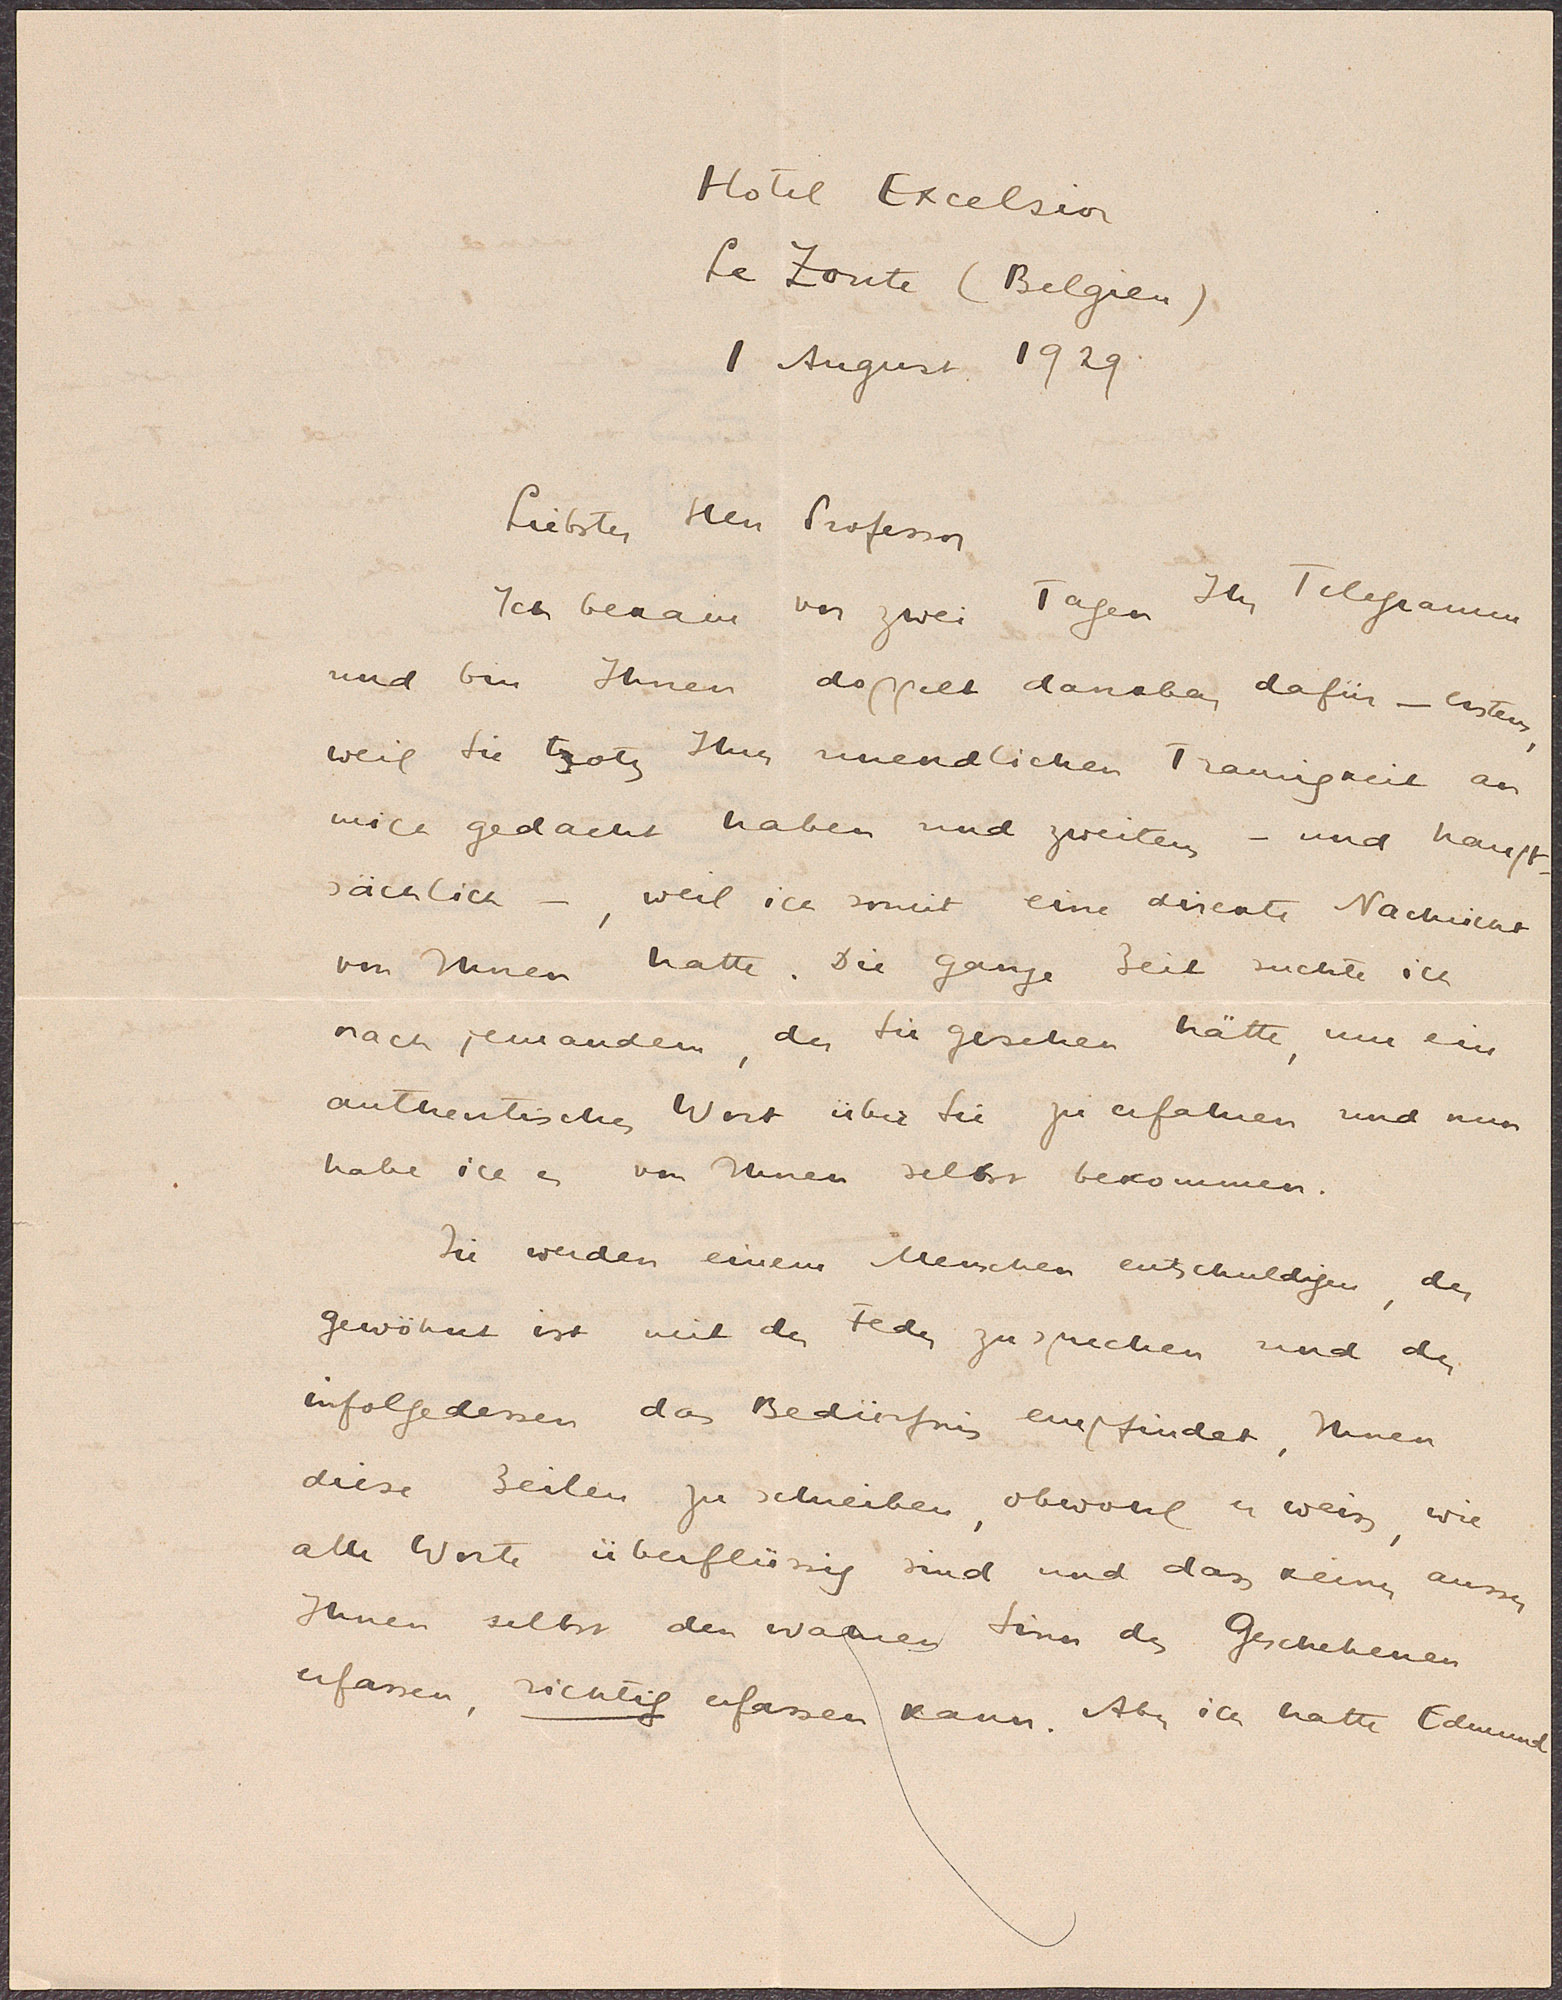 Hotel Excelsior
Le Zoute (Belgien)
1 August 1929.
Liebster Herr Professor
Ich bekam vor zwei Tagen Ihr Telegramm
und bin Ihnen doppelt dankbar dafür – erstens,
weil Sie trotz Ihrer unendlichen Traurigkeit an
mich gedacht haben und zweitens – und haupt-
sächlich –, weil ich somit eine direkte Nachricht
von Ihnen hatte. Die ganze Zeit suchte ich
nach jemandem, der Sie gesehen hätte, um ein
authentisches Wort über Sie zu erfahren und nun
habe ich es von Ihnen selbst bekommen.
Sie werden einem Menschen entschuldigen, der
gewöhnt ist mit der Feder zu sprechen und der
infolgedessen das Bedürfnis empfindet, Ihnen
diese Zeilen zu schreiben, obwohl er weiss, wie
alle Worte überflüssig sind und dass keiner ausser
Ihnen selbst den wahren Sinn des Geschehenen
erfassen, richtig erfassen kann. Aber ich hatte Edmund